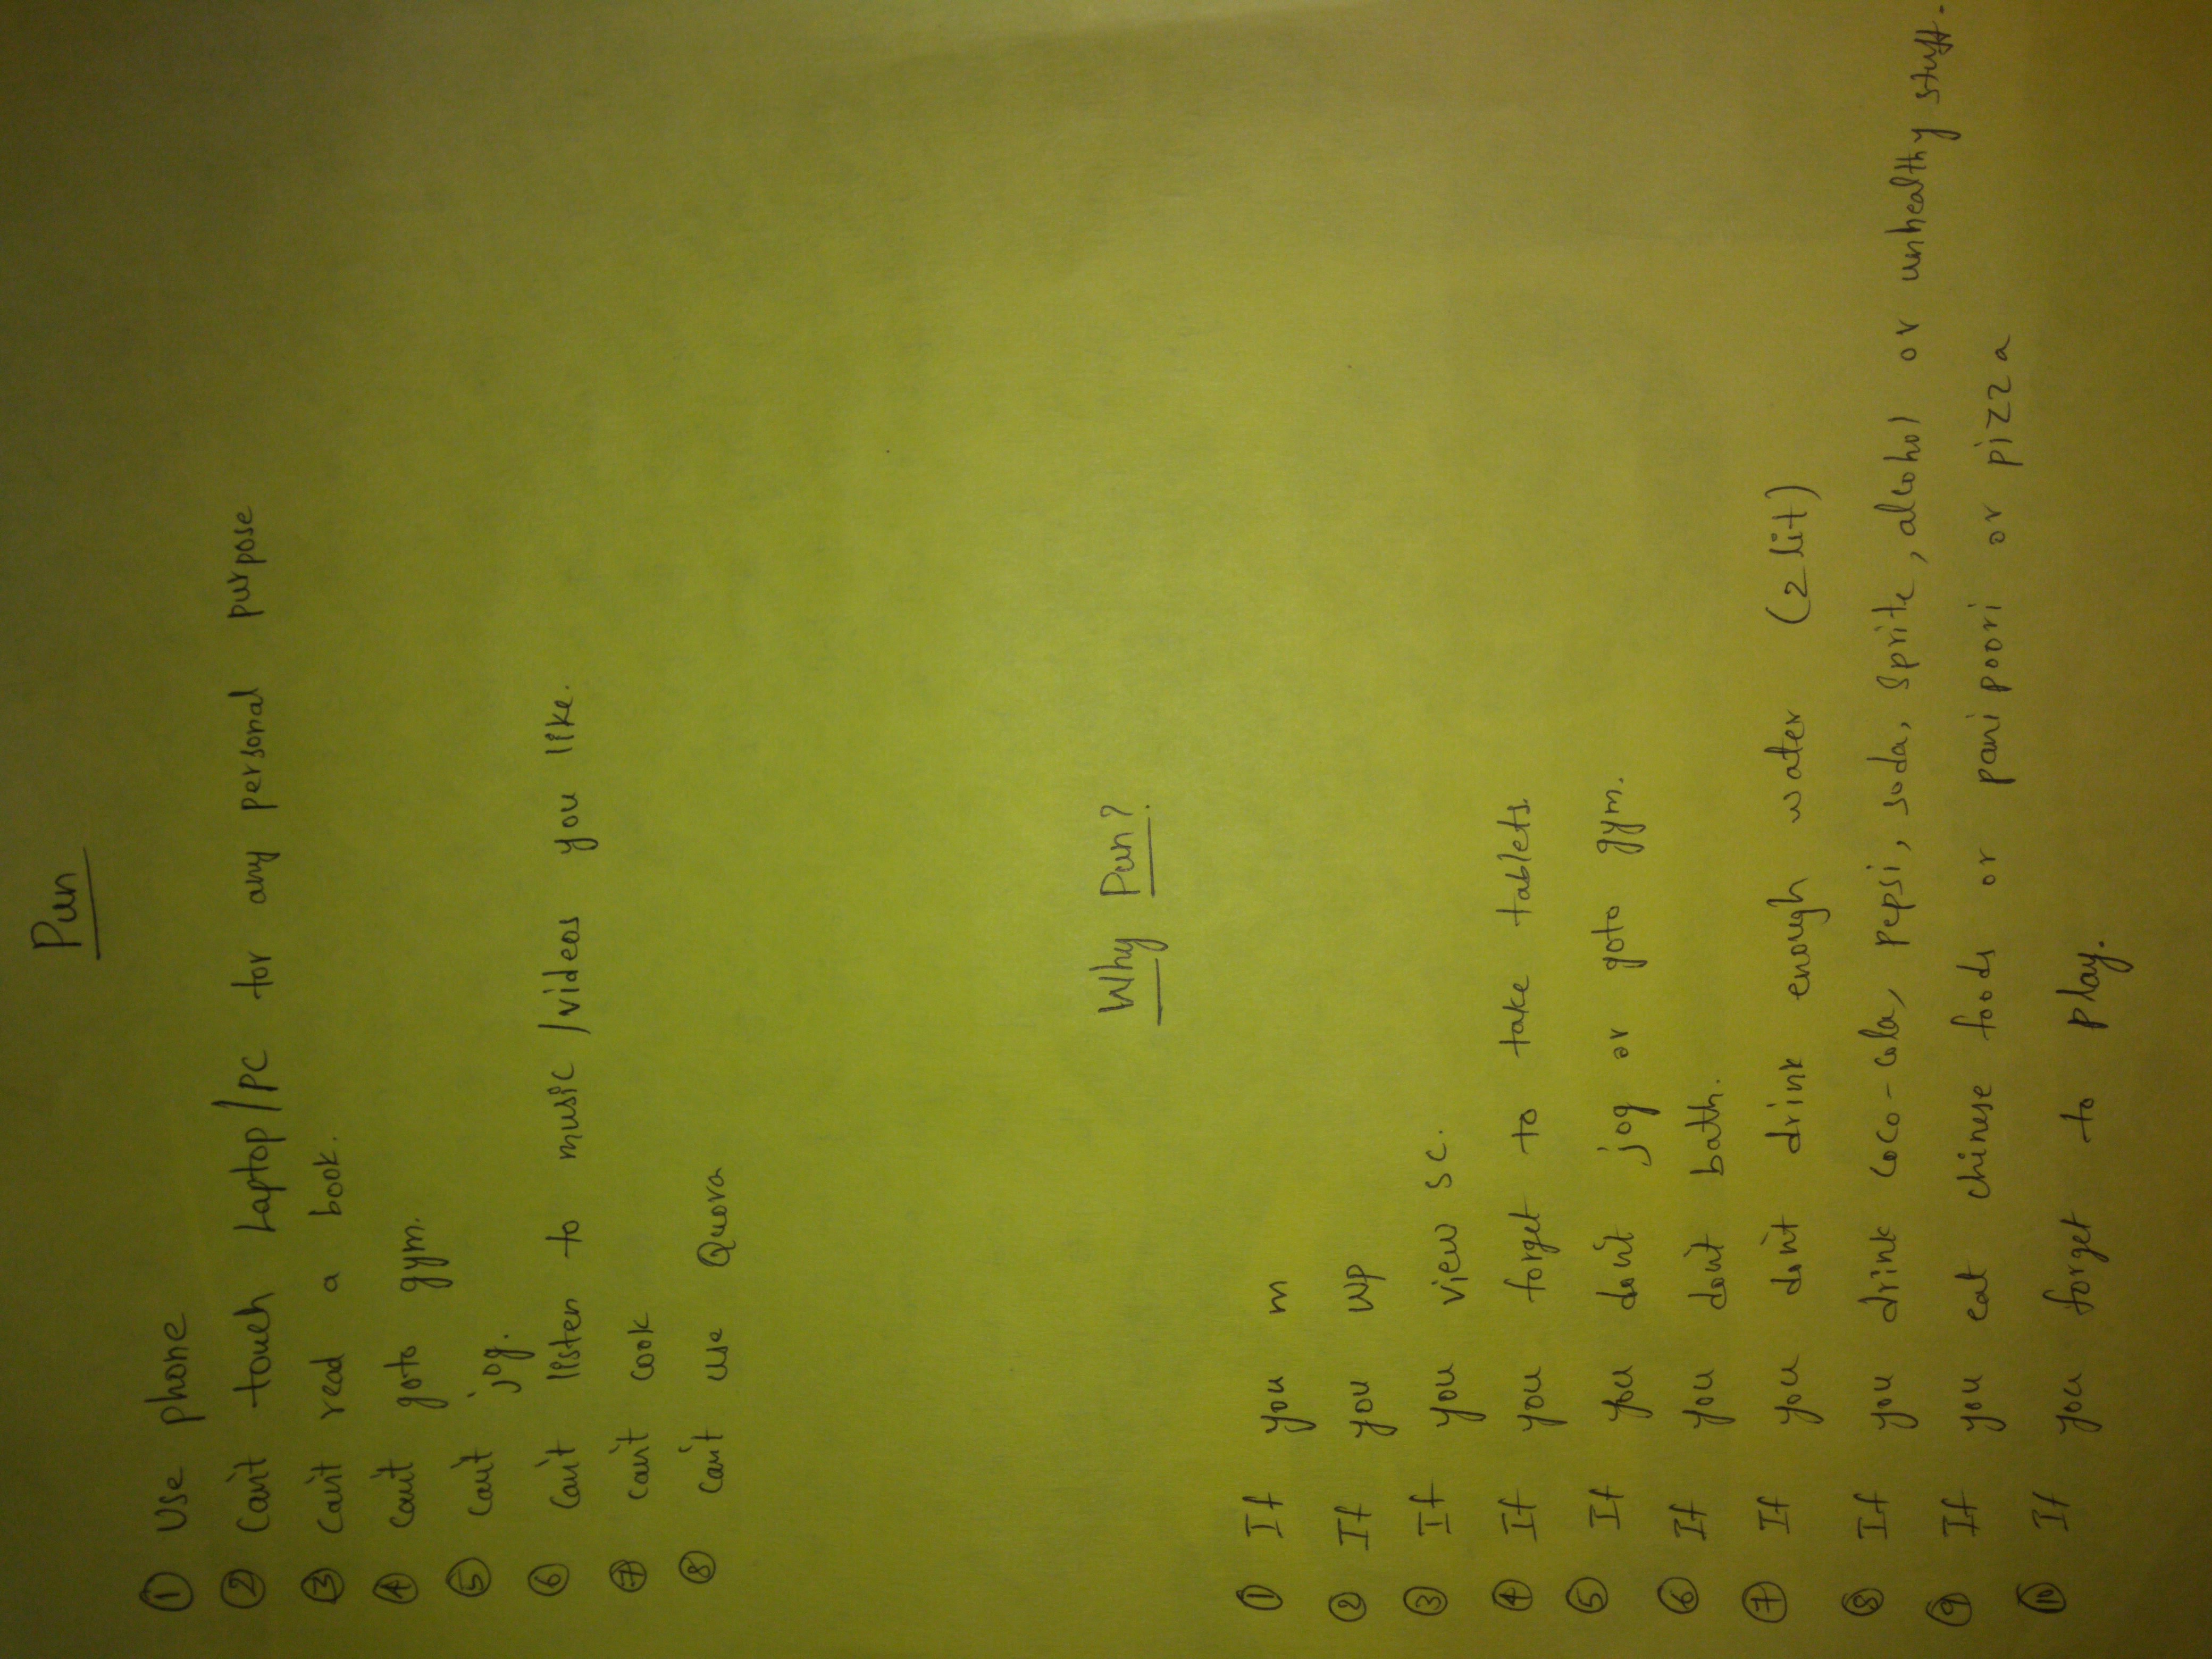 Pun
① Use phone
② Can't touch Laptop/PC for any personal purpose
③ Can't read a book.
④ Can't goto gym.
⑤ Can't jog.
⑥ Can't listen to music /videos you like.
⑦ Can't cook
⑧ Can't use Quora
Why Pun?
① If you m
② If you wp
③ If you view sc.
④ If you forget to take tablets.
⑤ If you don't jog or goto gym.
⑥ If you don't bath.
⑦ If you don't drink enough water (2 lit)
⑧ If you drink coco-cola, pepsi, soda, sprite, alcohol or unhealthy stuff.
⑨ If you eat chinese foods or pani poori or pizza
⑩ If you forget to play.